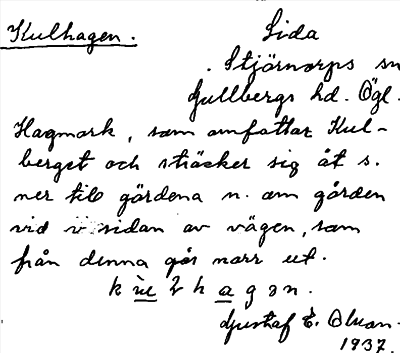 Kulhagen.
Sida
Stjörnorps sn
Gullbergs hd. Ögl.
Hagmark, som omfattar Kul-
berget och sträcker sig åt s.
ner till gärdena n. om gården
vid v sidan av vägen, som
från denna går norr ut.
Gustaf E. Olson.
1937.